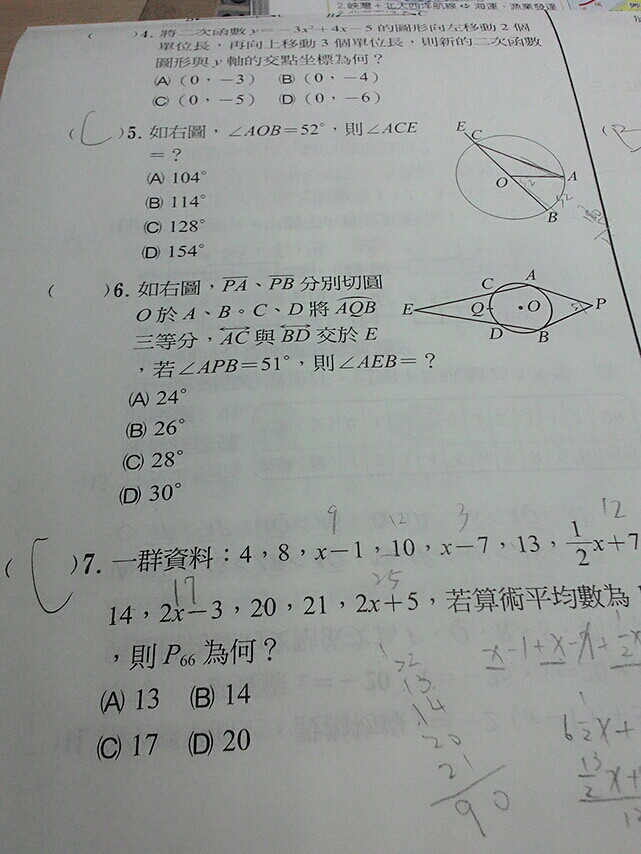 2.峽灣＋北大西洋洋流 ⇔ 海運、漁業發達
( )4. 將二次函數 y＝－3x²＋4x－5 的圖形向左移動 2 個
單位長，再向上移動 3 個單位長，則新的二次函數
圖形與 y 軸的交點坐標為何？
(A)（0，－3） (B)（0，－4）
(C)（0，－5） (D)（0，－6）
( C )5. 如右圖，∠AOB＝52°，則∠ACE
＝？
(A) 104°
(B) 114°
(C) 128°
(D) 154°
E C
O 52 A
52
B
( B
( )6. 如右圖，PA、PB 分別切圓
O 於 A、B。C、D 將 AQB
三等分，AC 與 BD 交於 E
，若∠APB＝51°，則∠AEB＝？
(A) 24°
(B) 26°
(C) 28°
(D) 30°
C A
E Q O 51 P
D B
9 12 3 12
( C )7. 一群資料：4，8，x－1，10，x－7，13，1/2x＋7
17 25
14，2x－3，20，21，2x＋5，若算術平均數為
，則 P₆₆ 為何？
(A) 13 (B) 14
(C) 17 (D) 20
13
14
20
21
90